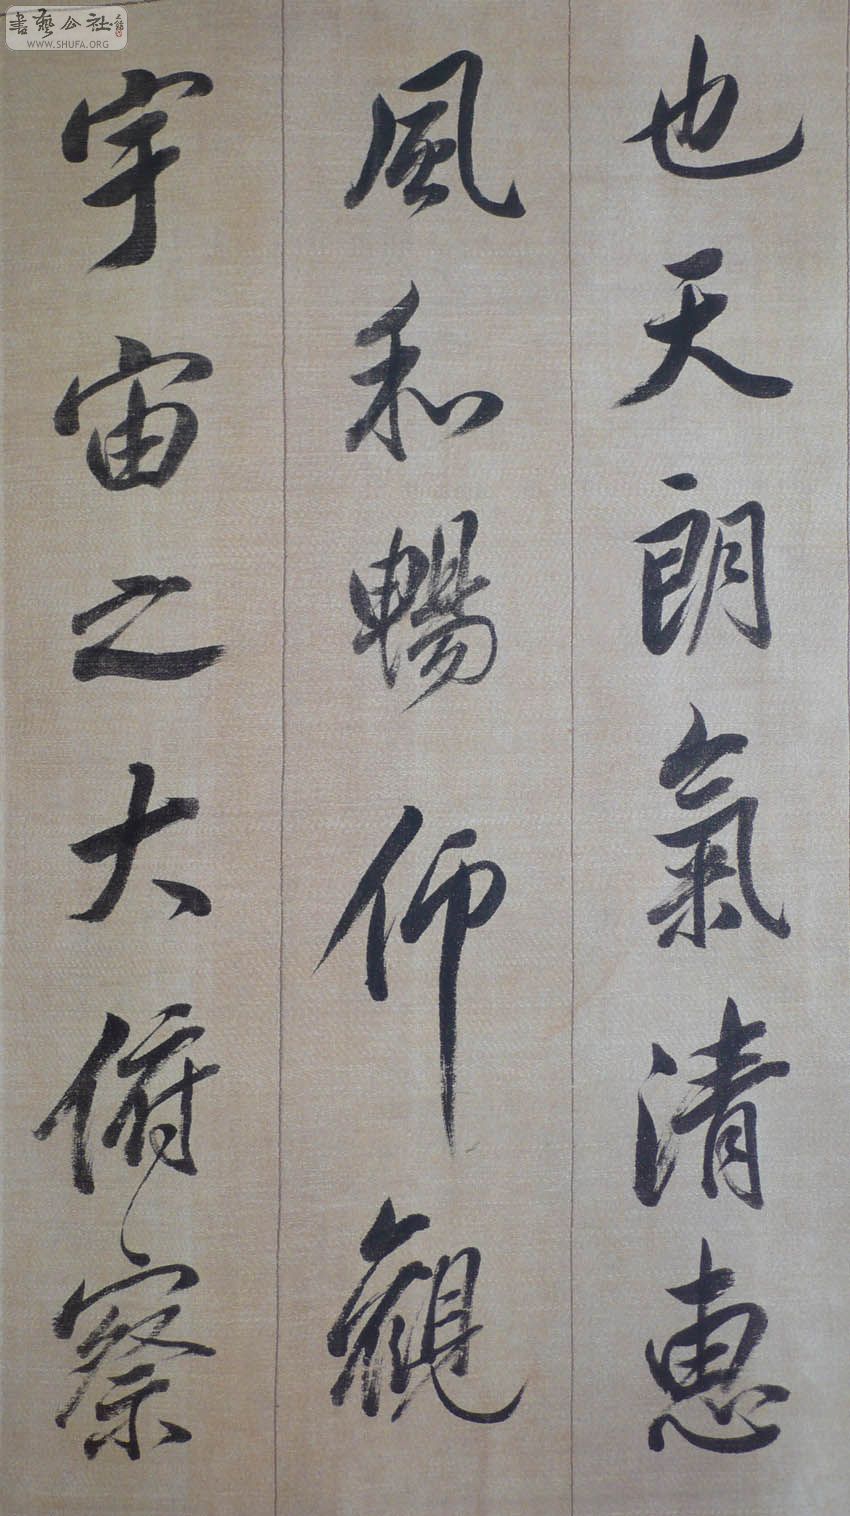 也天朗氣清惠
風和暢仰觀
宇宙之大俯察
書藝公社
WWW.SHUFA.ORG